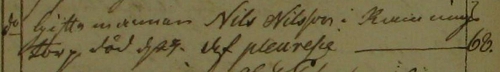 do Gifte mannen Nils Nilsson i Ramninge
torp död d. 29. af pleuresie 68.